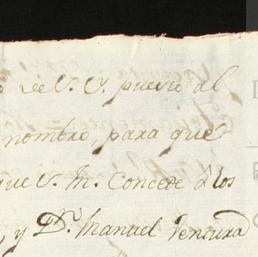 de V. S. puesto al
nombre, para que
que V. M. Concede a los
y Dn. Manuel Ventura